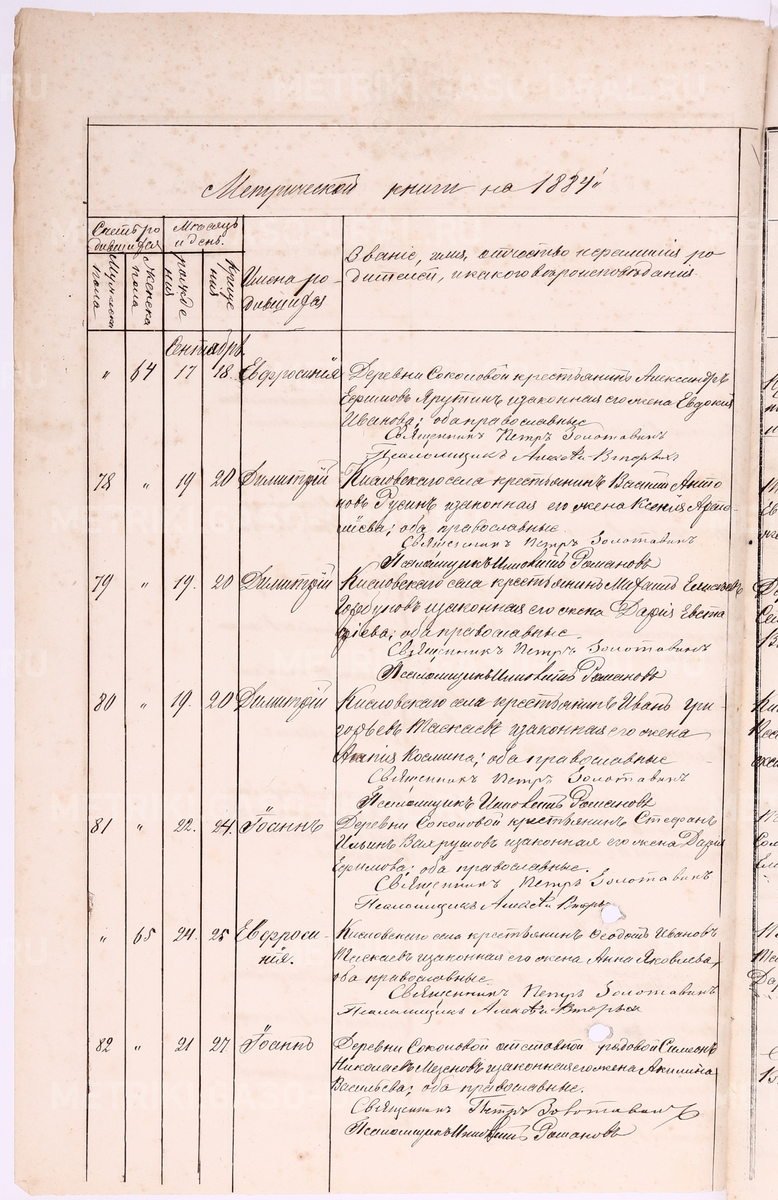 METRIKI.GASU-URAL.RU
Метрической книги на 1884 г
Счетъ ро
дившихся
Мѣсяцъ
и день.
Мужеска
пола
Женска
пола
рожде
нія
Креще
нія
Имена ро-
дившихся
Званіе, имя, отчество и фамилія ро-
дителей, и какого вѣроисповѣданія.
Сентябрь
" 64 17 18. Евфросинія Деревни Соколовой крестьянинъ Александръ
Ефимовъ Ярутинъ и законная его жена Евдокія
Иванова; оба православные
Священникъ Петръ Золотавинъ
Псаломщикъ Алексѣй Вторыхъ
78 " 19 20 Димитрій Кисловскаго села крестьянинъ Василій Анто
новъ Русинъ и законная его жена Ксенія
оба православные.
Священникъ Петръ Золотавинъ
Псаломщикъ Романовъ
79 " 19. 20 Димитрій Кисловскаго села крестьянинъ Михаилъ
Горбуновъ и законная его жена Дарія Евста
фіева; оба православные.
Священникъ Петръ Золотавинъ
Псаломщикъ Романовъ
80 " 19. 20 Димитрій Кисловскаго села крестьянинъ Иванъ Гри-
горьевъ Таскаевъ и законная его жена
Агапія Космина; оба православные
Священникъ Петръ Золотавинъ
Псаломщикъ Романовъ
81 " 22. 24. Іоаннъ Деревни Соколовой крестьянинъ Стефанъ
Ильинъ и законная его жена Дарія
Ефимова; оба православные.
Священникъ Петръ Золотавинъ
Псаломщикъ Алексѣй Вторы
" 65 24. 25 Евфроси-
нія. Кисловскаго села крестьянинъ Ѳеодотъ Ивановъ
Таскаевъ и законная его жена Анна Яковлева,
оба православные.
Священникъ Петръ Золотавинъ
Псаломщикъ Алексѣй Вторыхъ
82 " 21 27. Іоаннъ Деревни Соколовой отставной рядовой Симеонъ
Николаевъ Мезеновъ и законная его жена Акилина
Васильева; оба православные.
Священникъ Петръ Золотавинъ
Псаломщикъ Романовъ